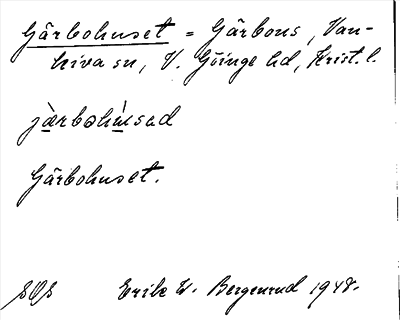 Gärbohuset = Gärbons, Van-
kiva sn, V. Göinge hd, Krist. l.
jàrbohùsəd
Gärbohuset.
SOS Erik W. Bergenrud 1948.